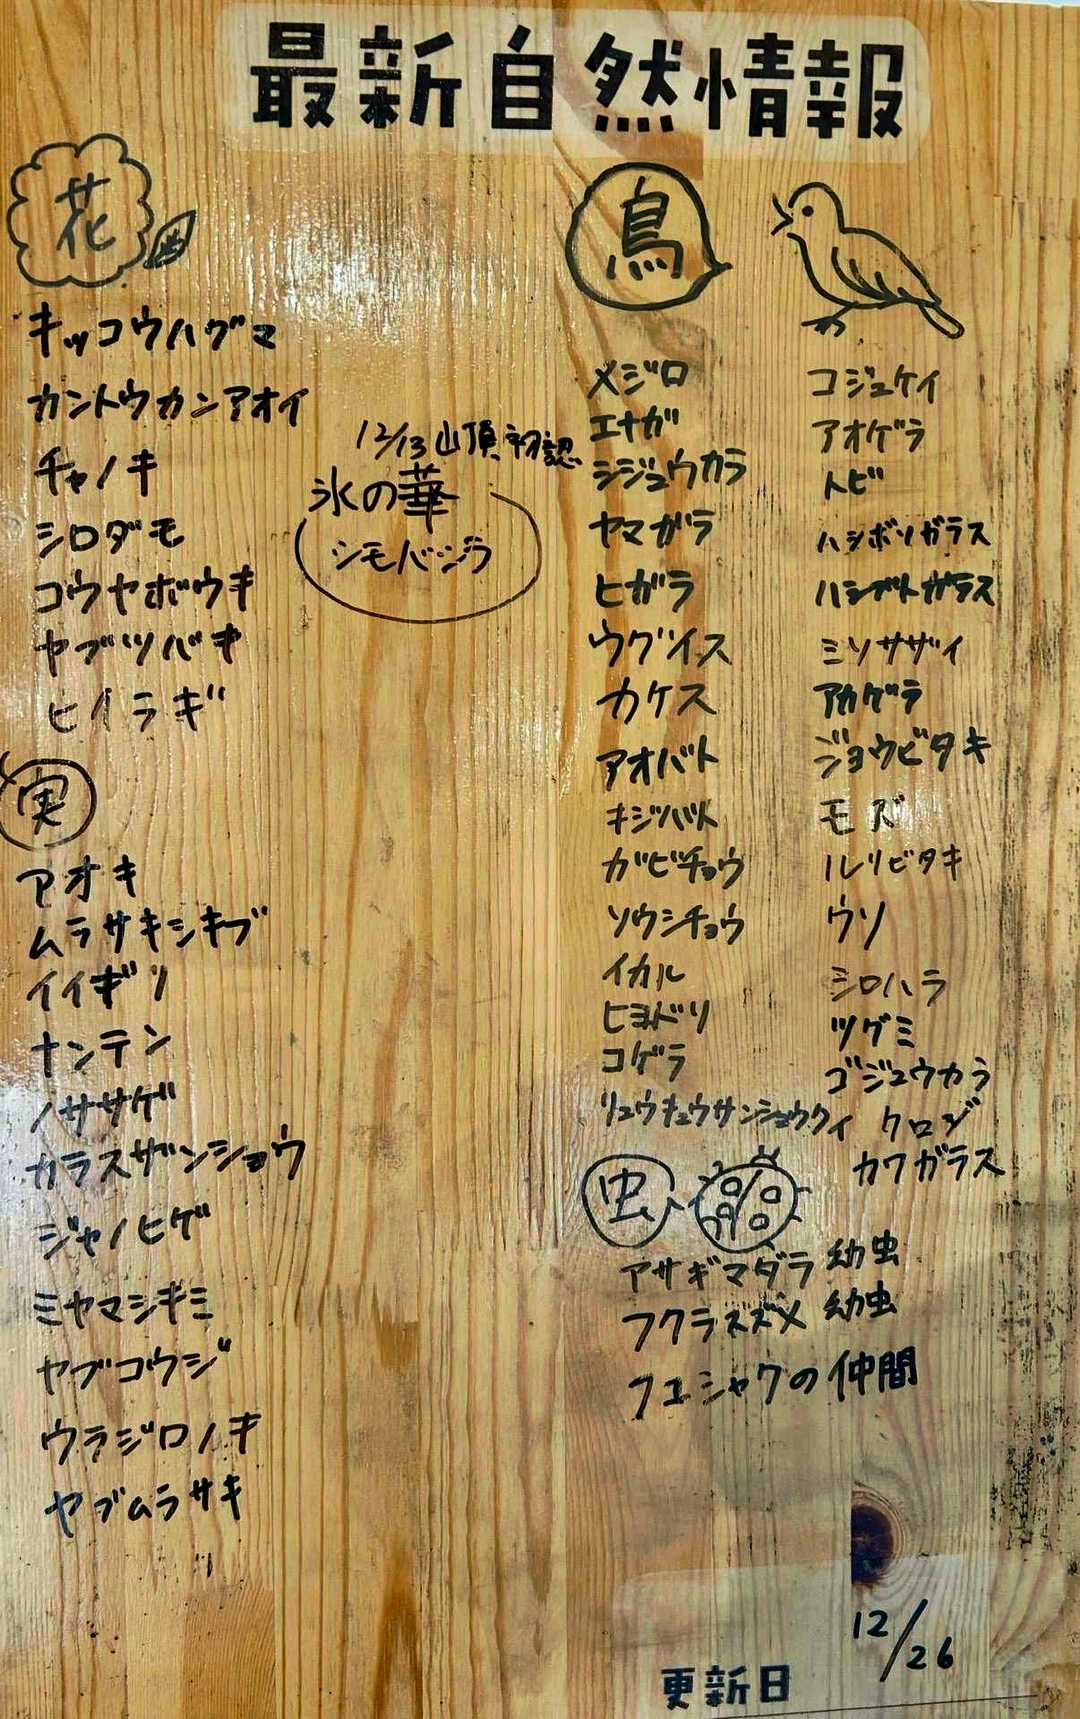 最新自然情報
花
キッコウハグマ
カントウカンアオイ
チャノキ
シロダモ
コウヤボウキ
ヤブツバキ
ヒイラギ
12/13 山頂初認
氷の華
シモバシラ
実
アオキ
ムラサキシキブ
イイギリ
ナンテン
ノササゲ
カラスザンショウ
ジャノヒゲ
ミヤマシキミ
ヤブコウジ
ウラジロノキ
ヤブムラサキ
鳥
メジロ
エナガ
シジュウカラ
ヤマガラ
ヒガラ
ウグイス
カケス
アオバト
キジバト
ガビチョウ
ソウシチョウ
イカル
ヒヨドリ
コゲラ
リュウキュウサンショウクイ
コジュケイ
アオゲラ
トビ
ハシボソガラス
ハシブトガラス
ミソサザイ
アカゲラ
ジョウビタキ
モズ
ルリビタキ
ウソ
シロハラ
ツグミ
ゴジュウカラ
クロジ
カワガラス
虫
アサギマダラ 幼虫
フクラスズメ 幼虫
フユシャクの仲間
12/26
更新日